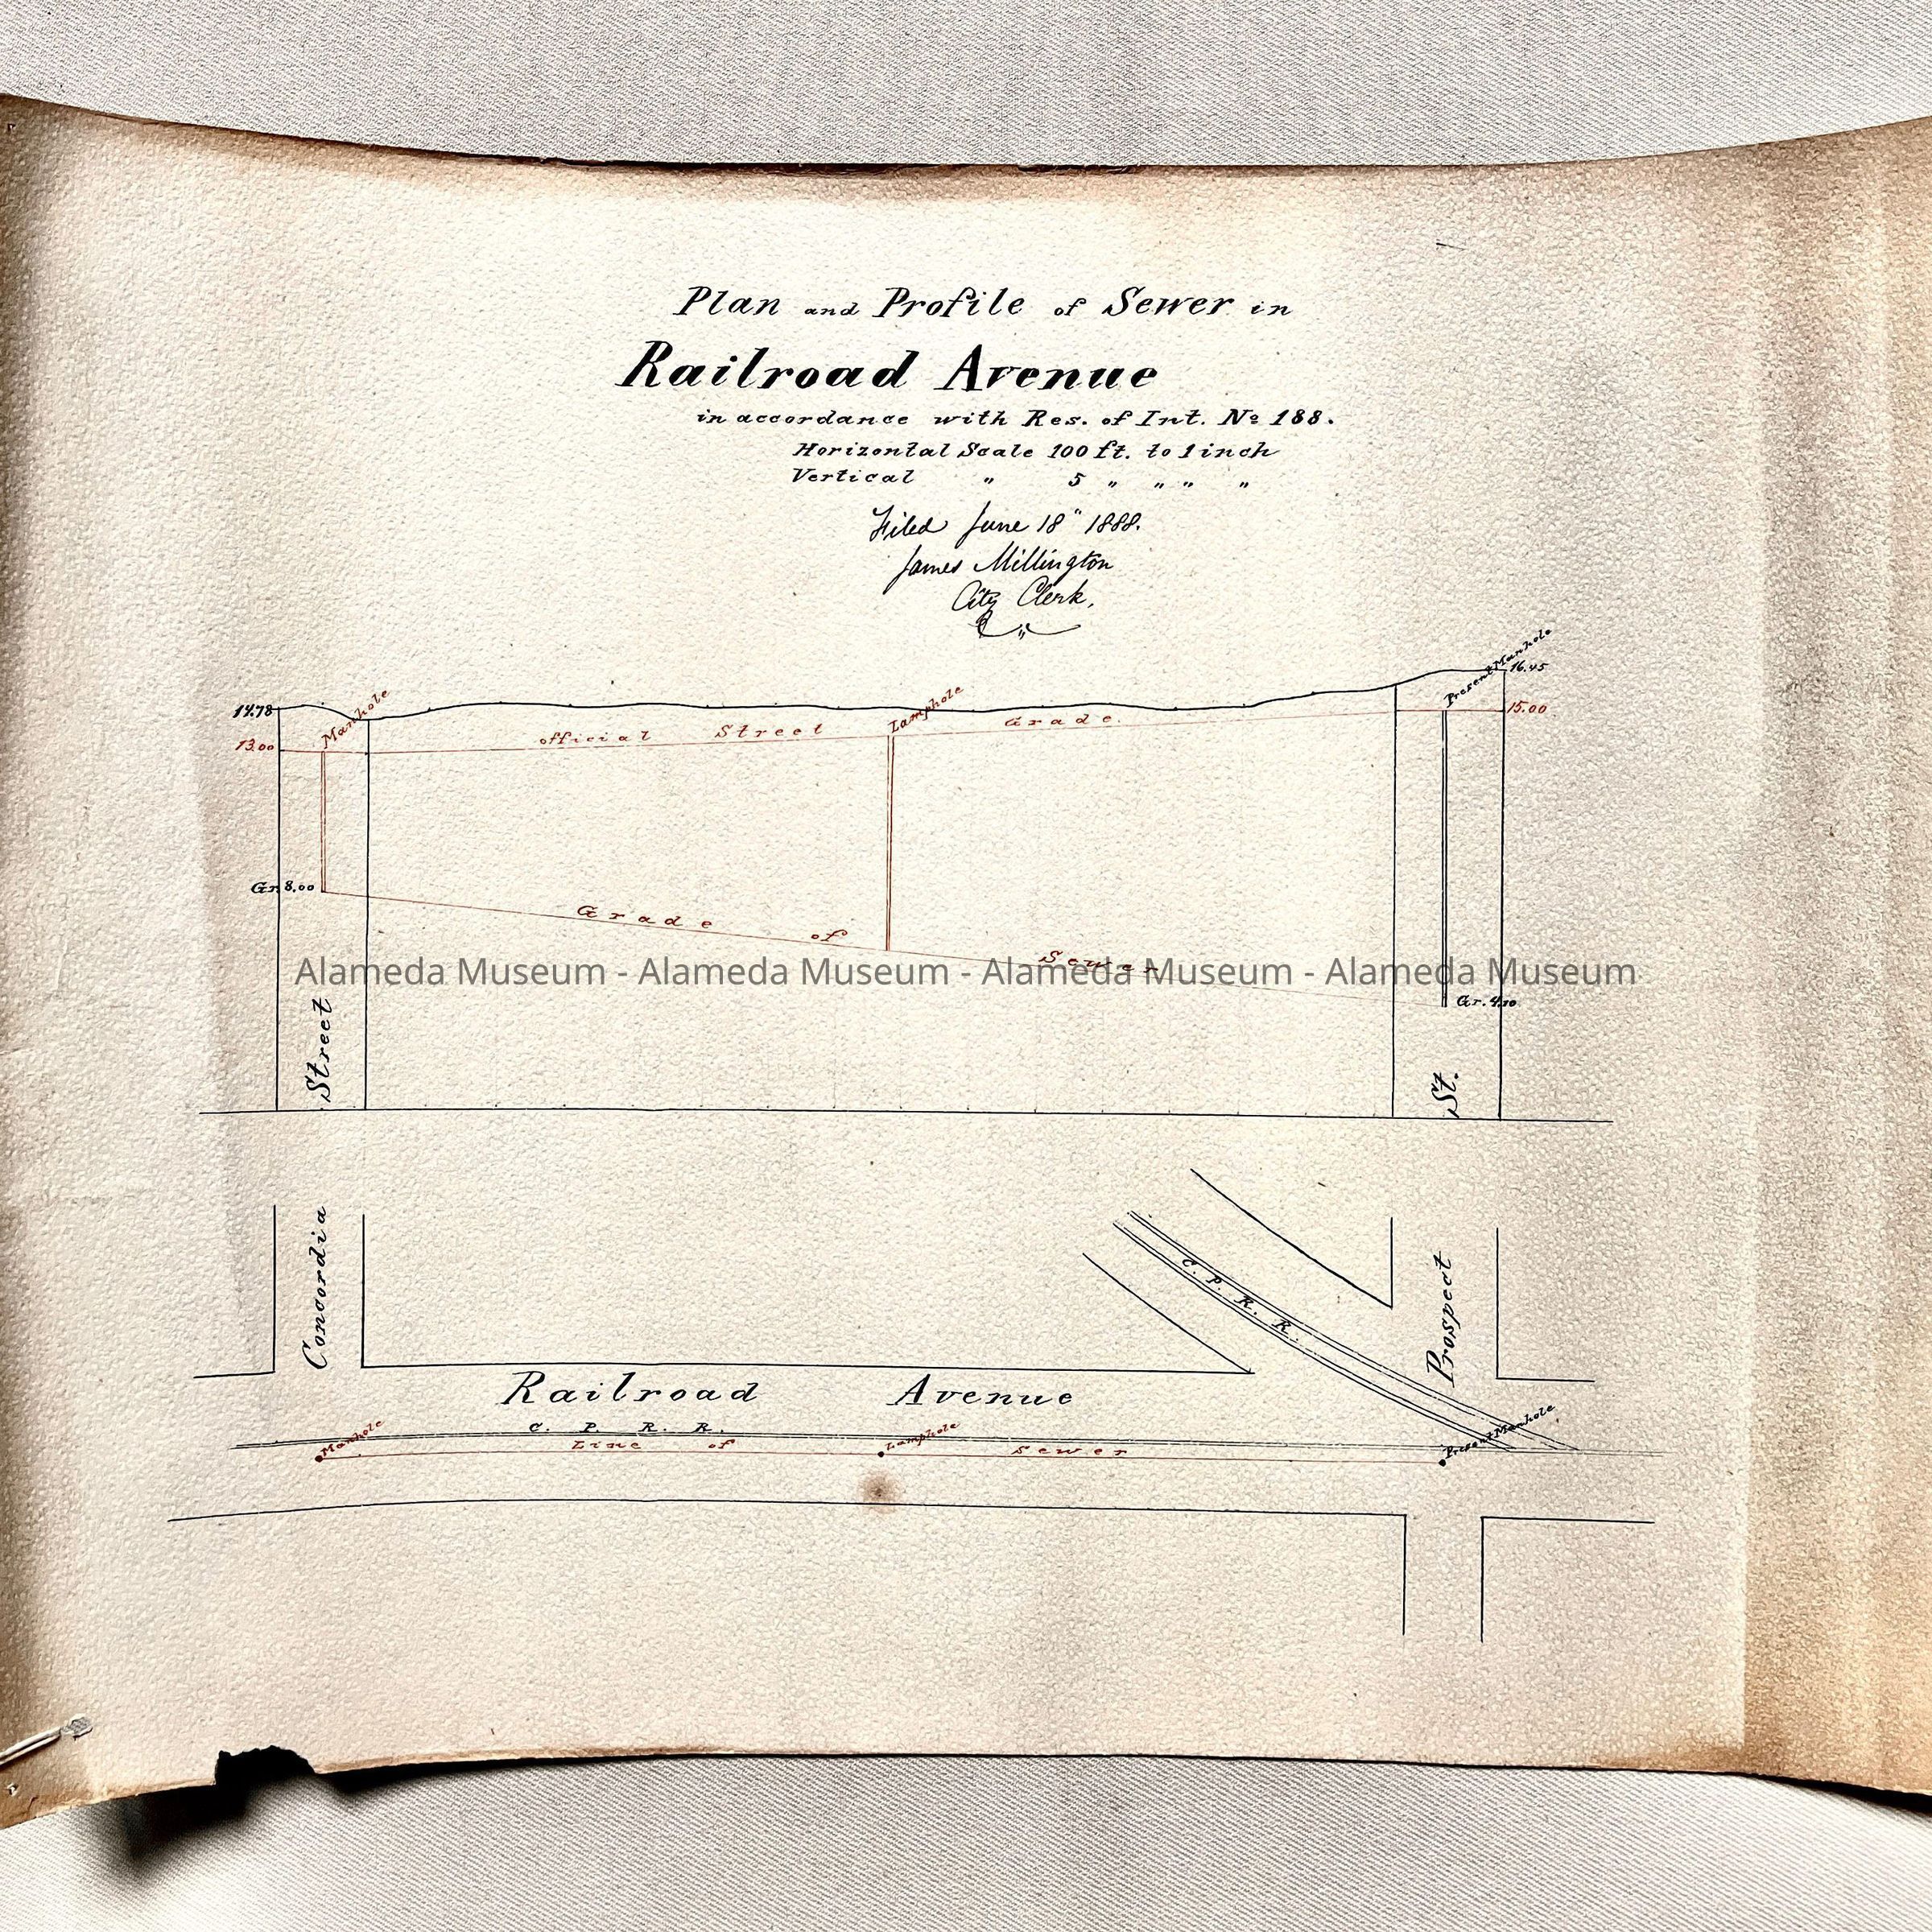 Plan and Profile of Sewer in
Railroad Avenue
in accordance with Res. of Int. No 188.
Horizontal Scale 100 ft. to 1 inch
Vertical " 5 " " " "
Filed June 18" 1888.
James Millington
City Clerk.
Present Manhole
16.45
14.78
Manhole
Lamphole
15.00
13.00
official Street Grade
Gr. 8.00
Grade of Sewer
Alameda Museum - Alameda Museum - Alameda Museum - Alameda Museum
Gr.
Street
St.
Concordia
C. P. R. R.
Prospect
Railroad Avenue
C. P. R. R.
Manhole
Line of Sewer
Lamphole
Present Manhole